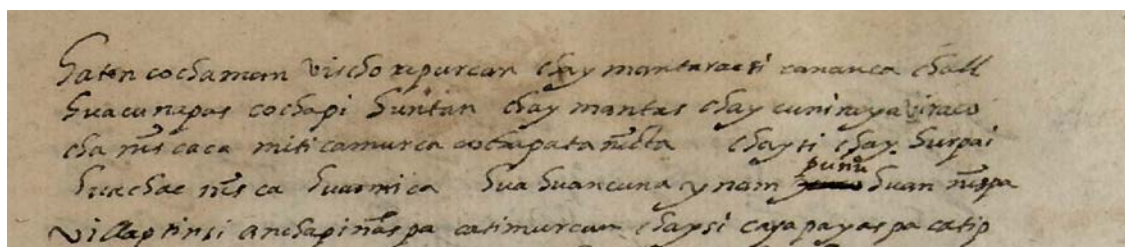 hatun cochaman vischorpurcan chaymantaracsi cananca chall
huacunapas cochapi huntan chaymantas chay cuniraya viraco
cha nisca miticamurca cochapata ñicta chaysi chay hurpai
huachac nisca huarmica huahuancuna ynam puñu huan nispa
villaptinsi ancha piñaspa catimurcan chaysi cayapayaspa catip